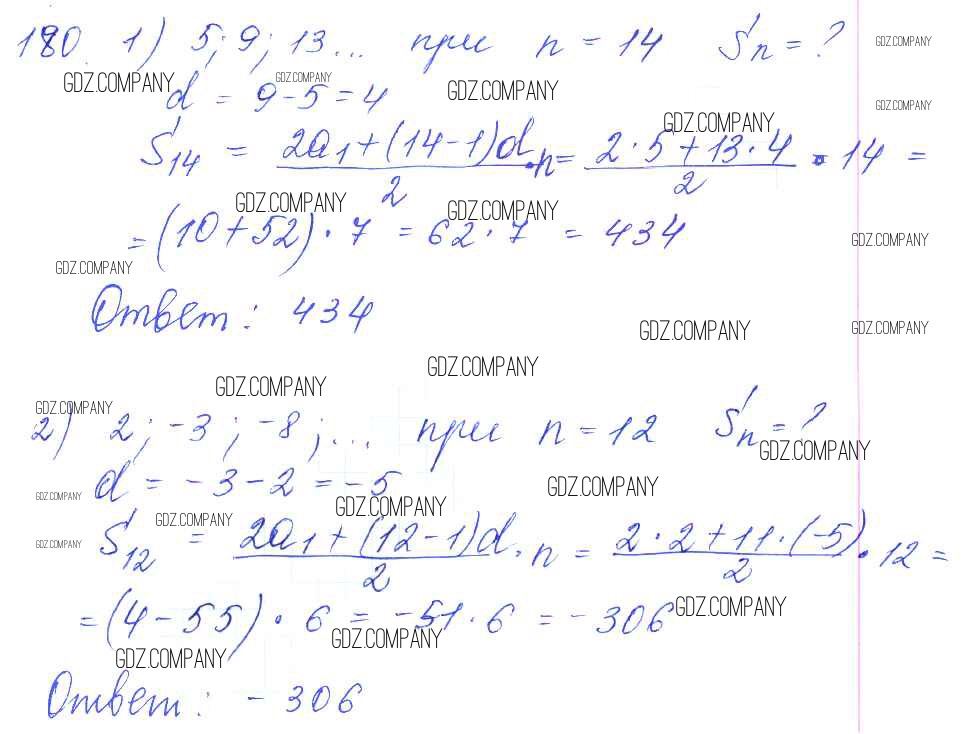 180 1) 5; 9; 13... при n = 14 Sn = ? GDZ.COMPANY
GDZ.COMPANY GDZ.COMPANY GDZ.COMPANY GDZ.COMPANY
d = 9 - 5 = 4
GDZ.COMPANY
S14 = (2a1 + (14 - 1)d)/2 · n = (2 · 5 + 13 · 4)/2 · 14 =
GDZ.COMPANY GDZ.COMPANY
= (10 + 52) · 7 = 62 · 7 = 434 GDZ.COMPANY
GDZ.COMPANY
Ответ: 434
GDZ.COMPANY GDZ.COMPANY
GDZ.COMPANY GDZ.COMPANY
GDZ.COMPANY
2) 2; -3; -8; ... при n = 12 Sn = ?
GDZ.COMPANY
d = -3 - 2 = -5
GDZ.COMPANY GDZ.COMPANY
GDZ.COMPANY GDZ.COMPANY
GDZ.COMPANY
S12 = (2a1 + (12 - 1)d)/2 · n = (2 · 2 + 11 · (-5))/2 · 12 =
= (4 - 55) · 6 = -51 · 6 = -306 GDZ.COMPANY
GDZ.COMPANY GDZ.COMPANY
Ответ: -306